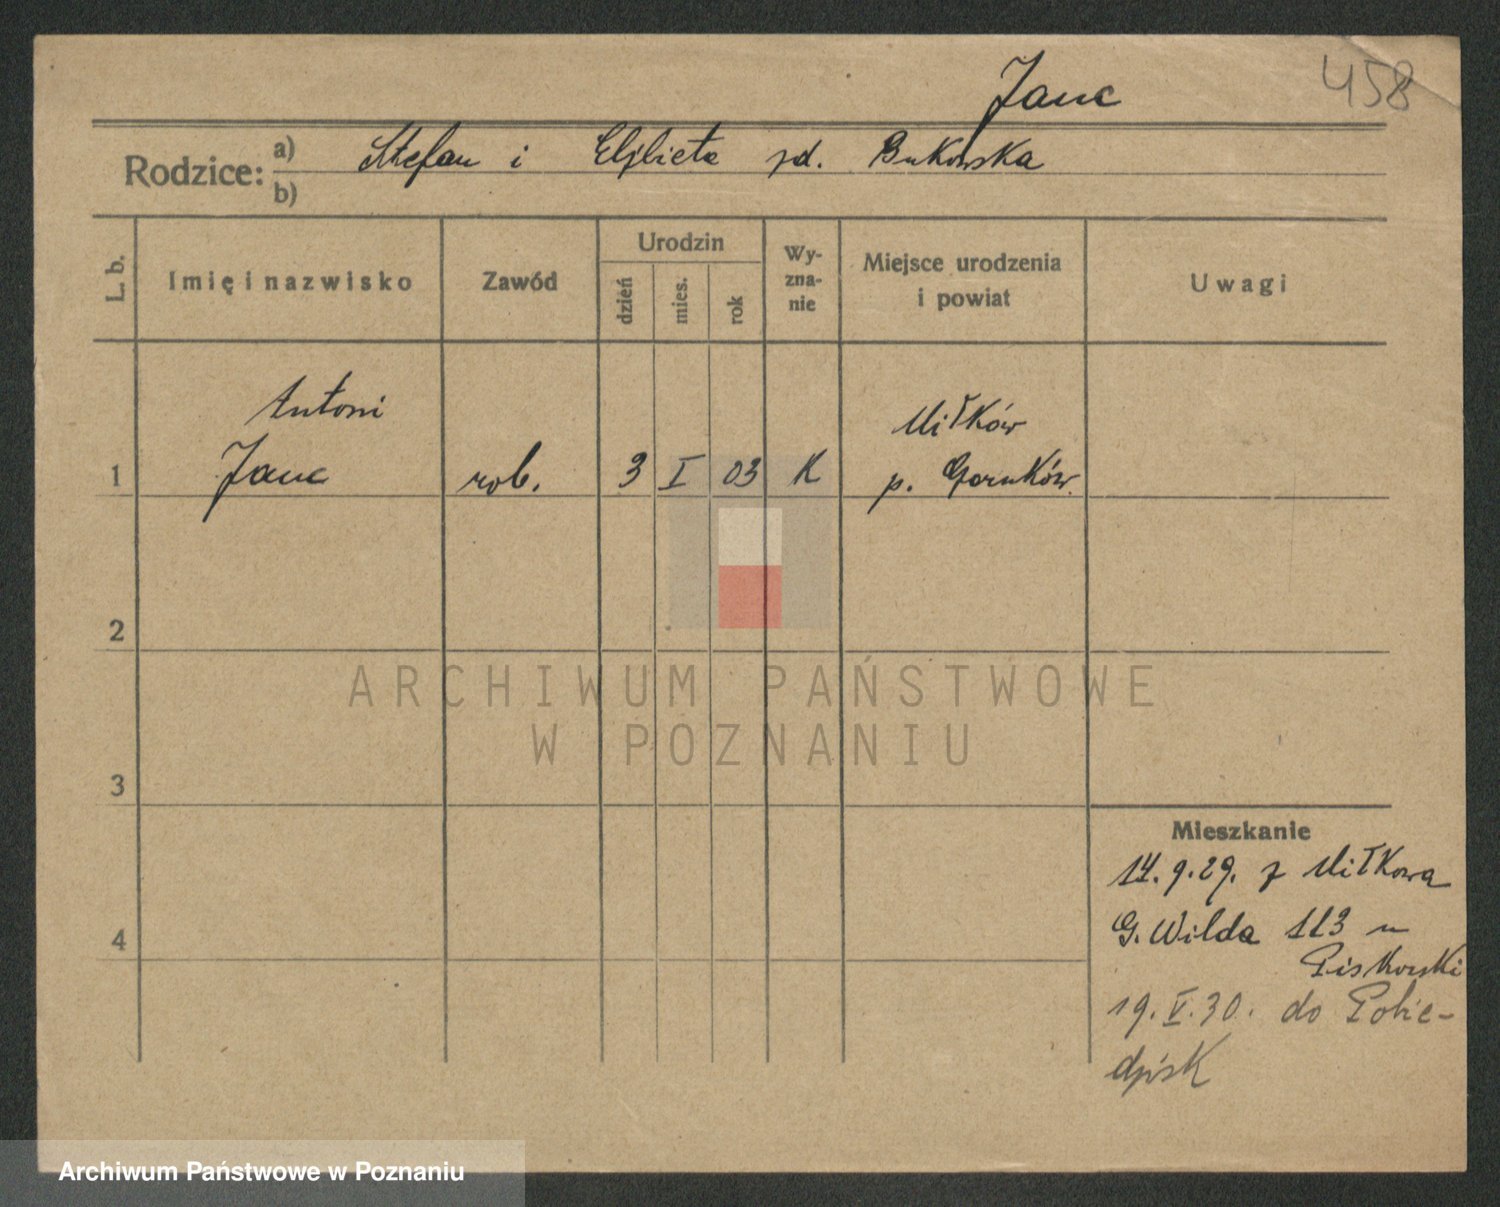 458
Janc
Rodzice: a) Stefan i Elżbieta zd. Bukowska
b)
L. b.
Imię i nazwisko
Zawód
Urodzin
dzień
mies.
rok
Wy-
zna-
nie
Miejsce urodzenia
i powiat
Uwagi
Antoni
Miłków
1 Janc rob. 3 I 03 K p.
2
3
4
Mieszkanie
14.9.29. z Miłkowa
G. Wilda 113 u
Piskorski
19.V.30. do Pobie-
dzisk
ARCHIWUM PAŃSTWOWE
W POZNANIU
Archiwum Państwowe w Poznaniu